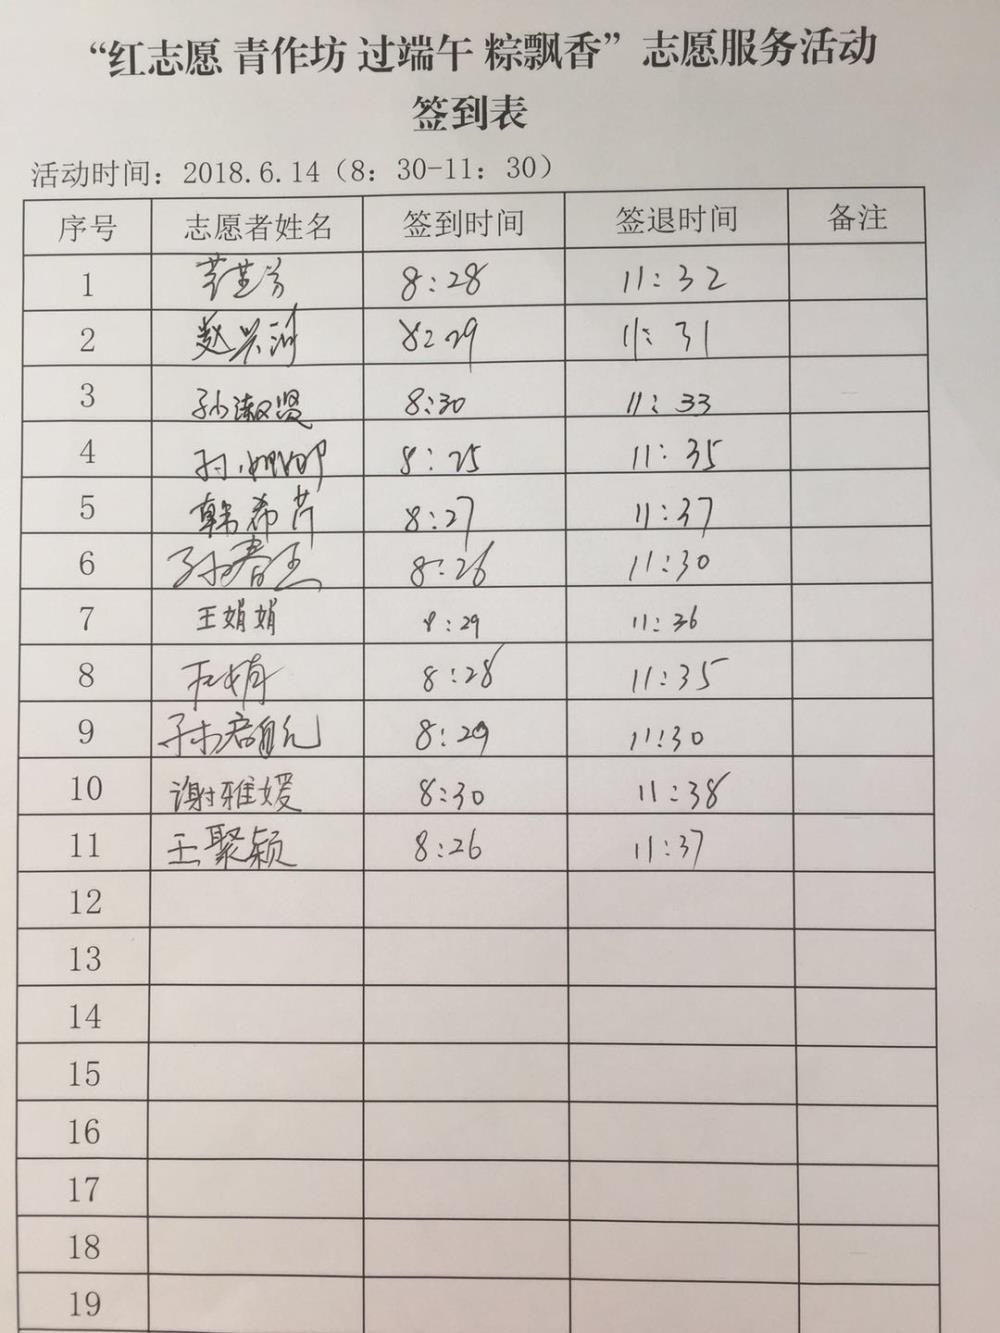 “红志愿 青作坊 过端午 粽飘香”志愿服务活动
签到表
活动时间：2018.6.14（8：30-11：30）
序号 志愿者姓名 签到时间 签退时间 备注
1 8:28 11:32
2 赵兴河 8:29 11:31
3 孙淑贤 8:30 11:33
4 孙娜娜 8:25 11:35
5 韩希芹 8:27 11:37
6 孙春玉 8:26 11:30
7 王娟娟 8:29 11:36
8 石娟 8:28 11:35
9 8:29 11:30
10 谢雅媛 8:30 11:38
11 王聚颖 8:26 11:37
12
13
14
15
16
17
18
19